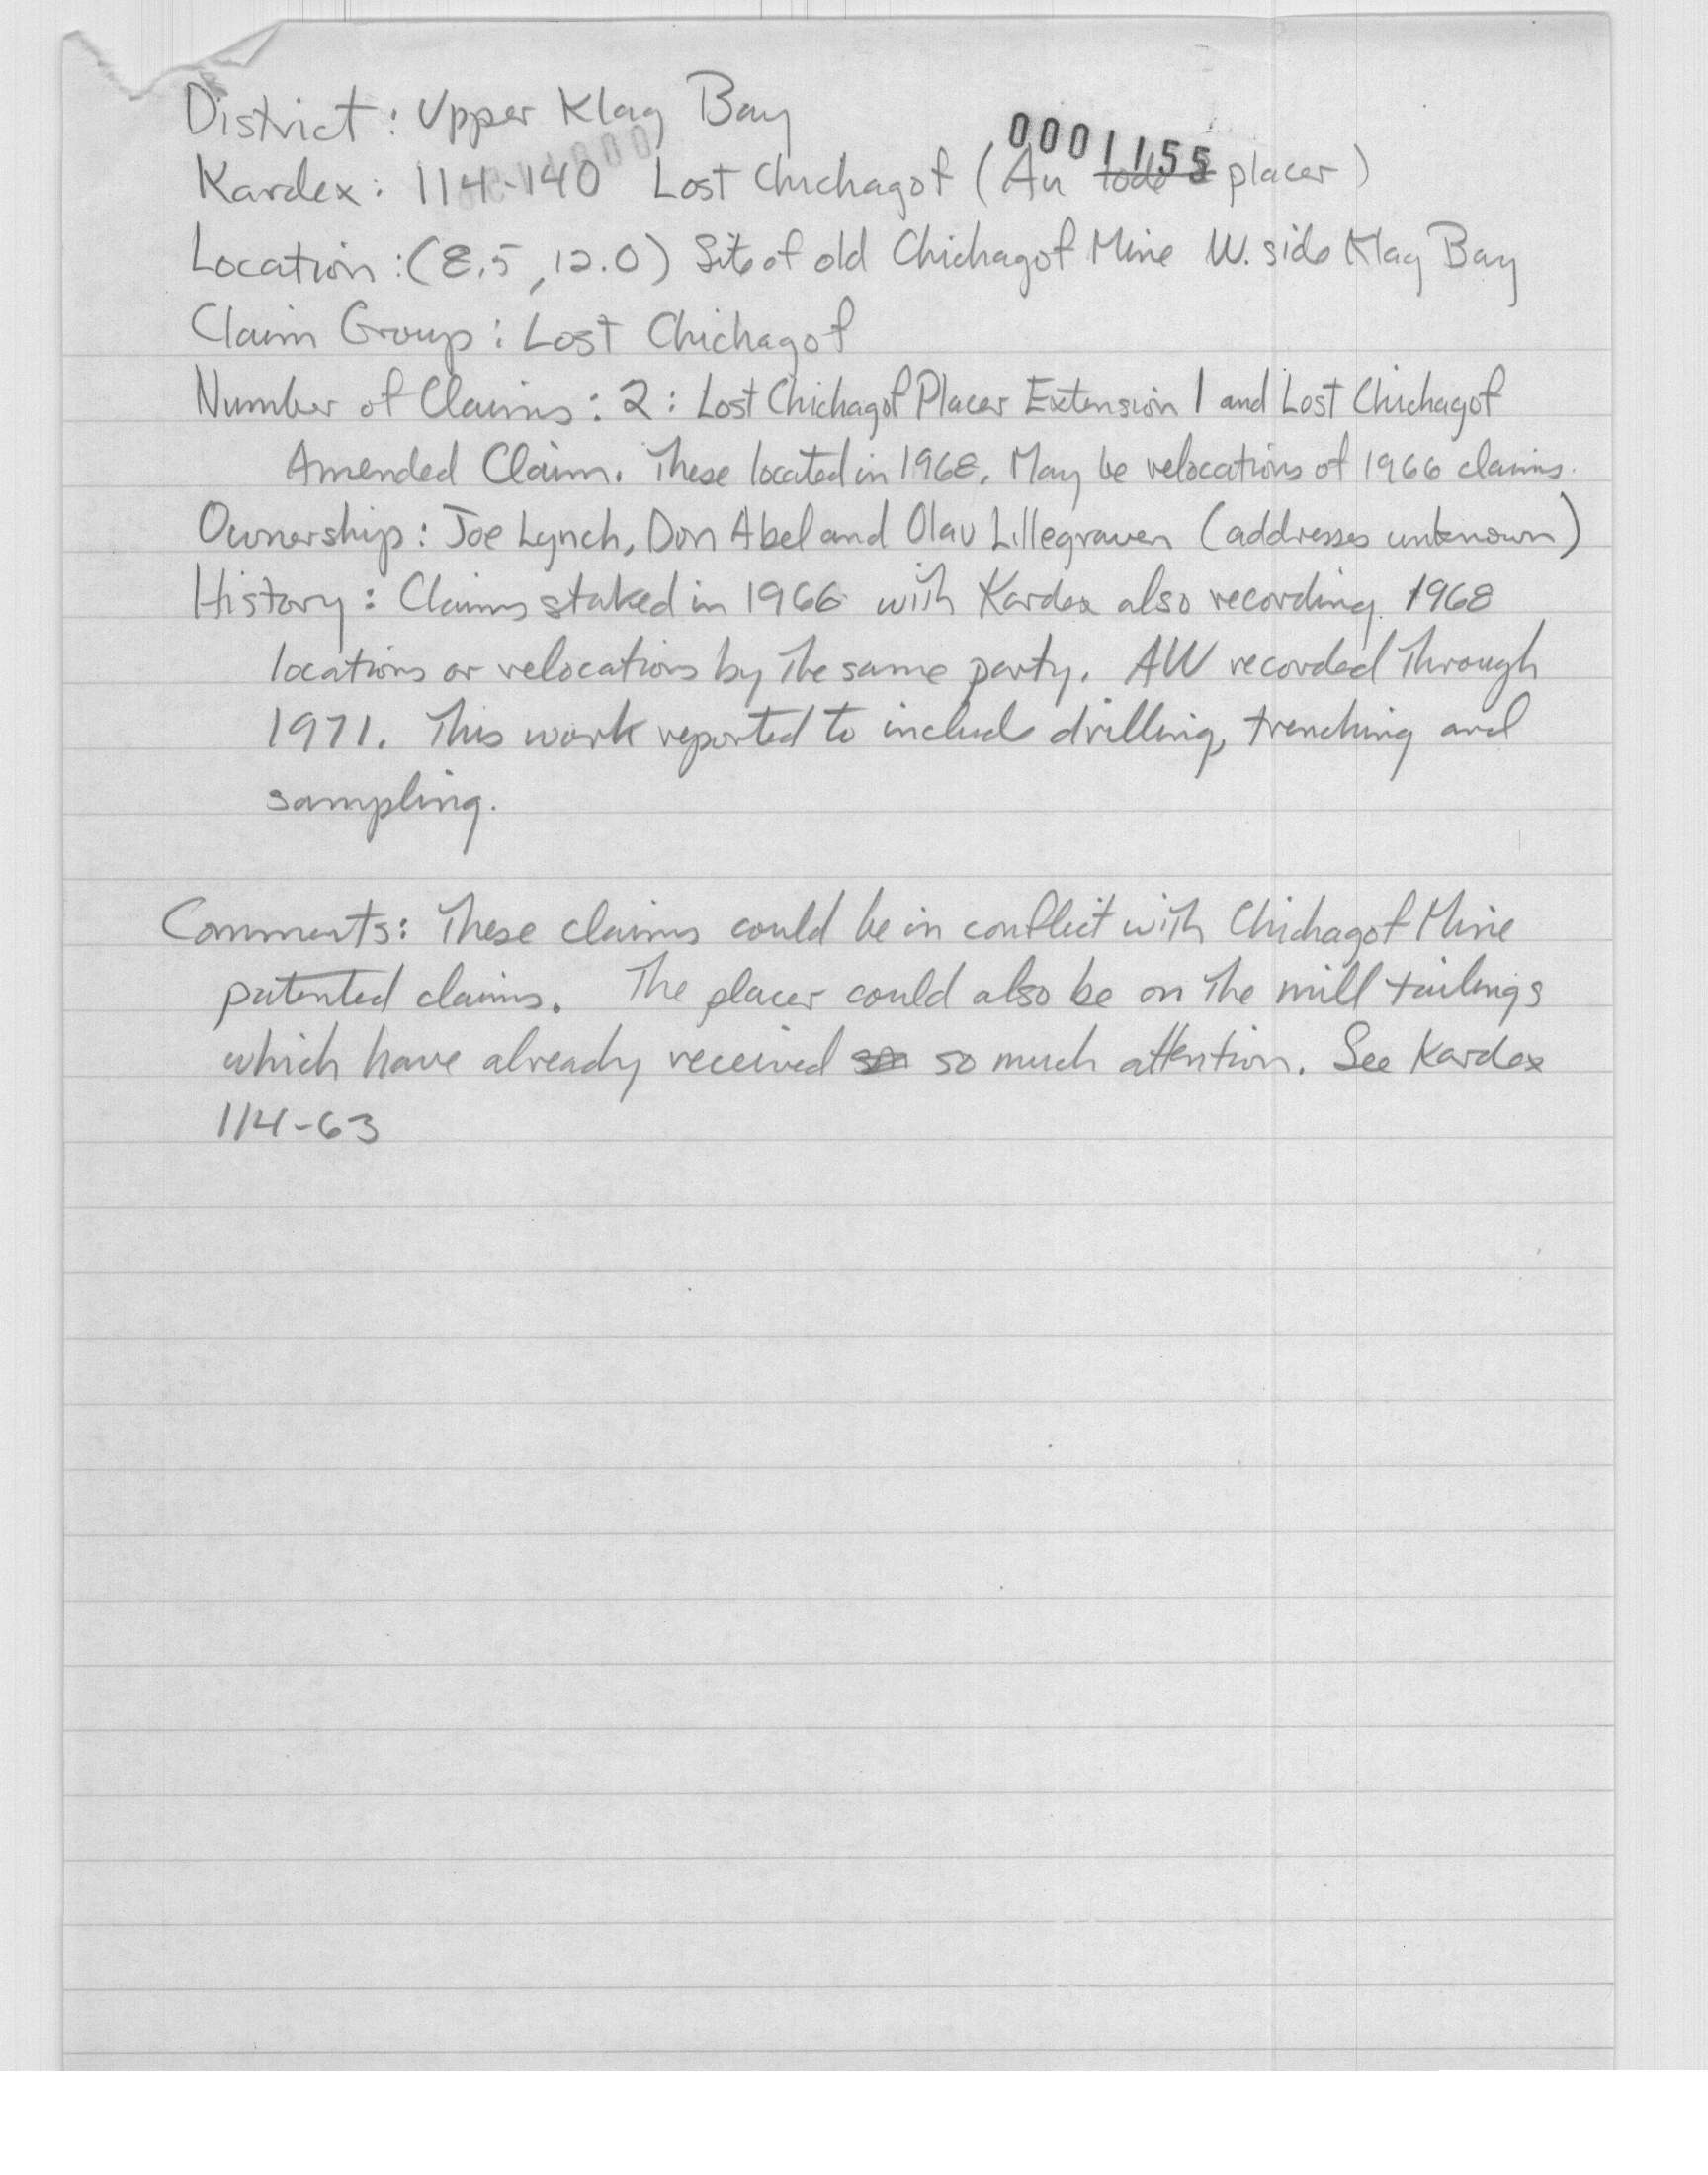 District: Upper Klag Bay
0001155
Kardex: 114-140 Lost Chichagof (Au lode placer)
Location: (8.5, 12.0) Site of old Chichagof Mine W. side Klag Bay
Claim Group: Lost Chichagof
Number of Claims: 2: Lost Chichagof Placer Extension 1 and Lost Chichagof
Amended Claim. These located in 1968. May be relocations of 1966 claims.
Ownership: Joe Lynch, Don Abel and Olav Lillegraven (addresses unknown)
History: Claims staked in 1966 with Kardex also recording 1968
locations or relocations by the same party. AW recorded through
1971. This work reported to include drilling, trenching and
sampling.
Comments: These claims could be in conflict with Chichagof Mine
patented claims. The placer could also be on the mill tailings
which have already received so much attention. See Kardex
114-63